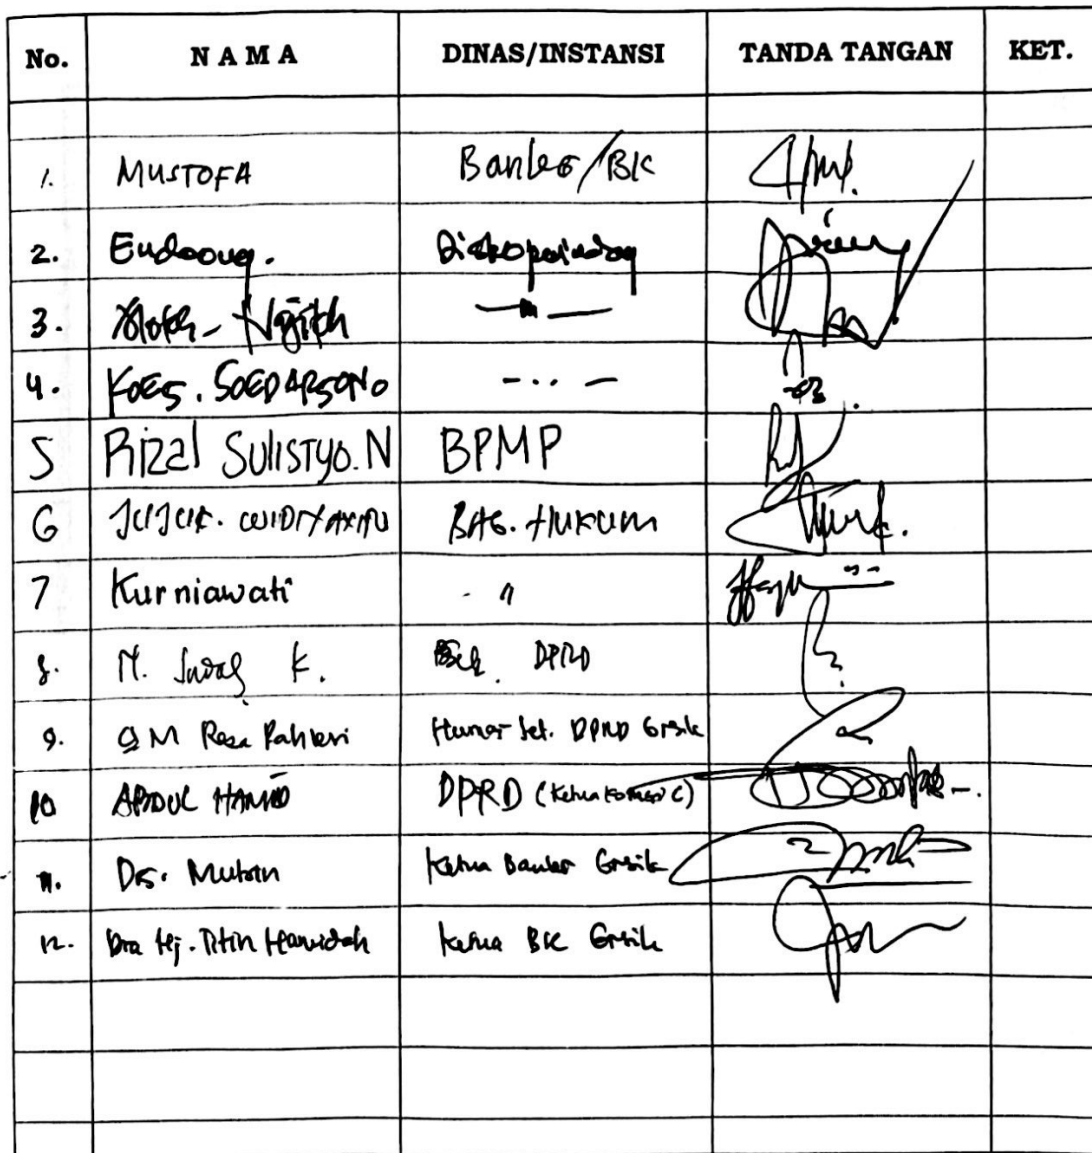 No. NAMA DINAS/INSTANSI TANDA TANGAN KET.
1. MUSTOFA Banleg/BK
2. Endoong. Diskoperindag
3. — " —
4. KOES. SOEDARSONO - .. -
5 Rizal Sulistyo.N BPMP
6 BAG. HUKUM
7 Kurniawati - "
8. M. K. DPRD
9. M Reza Pahlevi Humas Set. DPRD Grsik
10 ABDUL HAMID DPRD (Ketua Komisi C)
11. Drs. Ketua Banleg Gresik
12. Dra Hj. Titin Hamidah Ketua BK Gresik